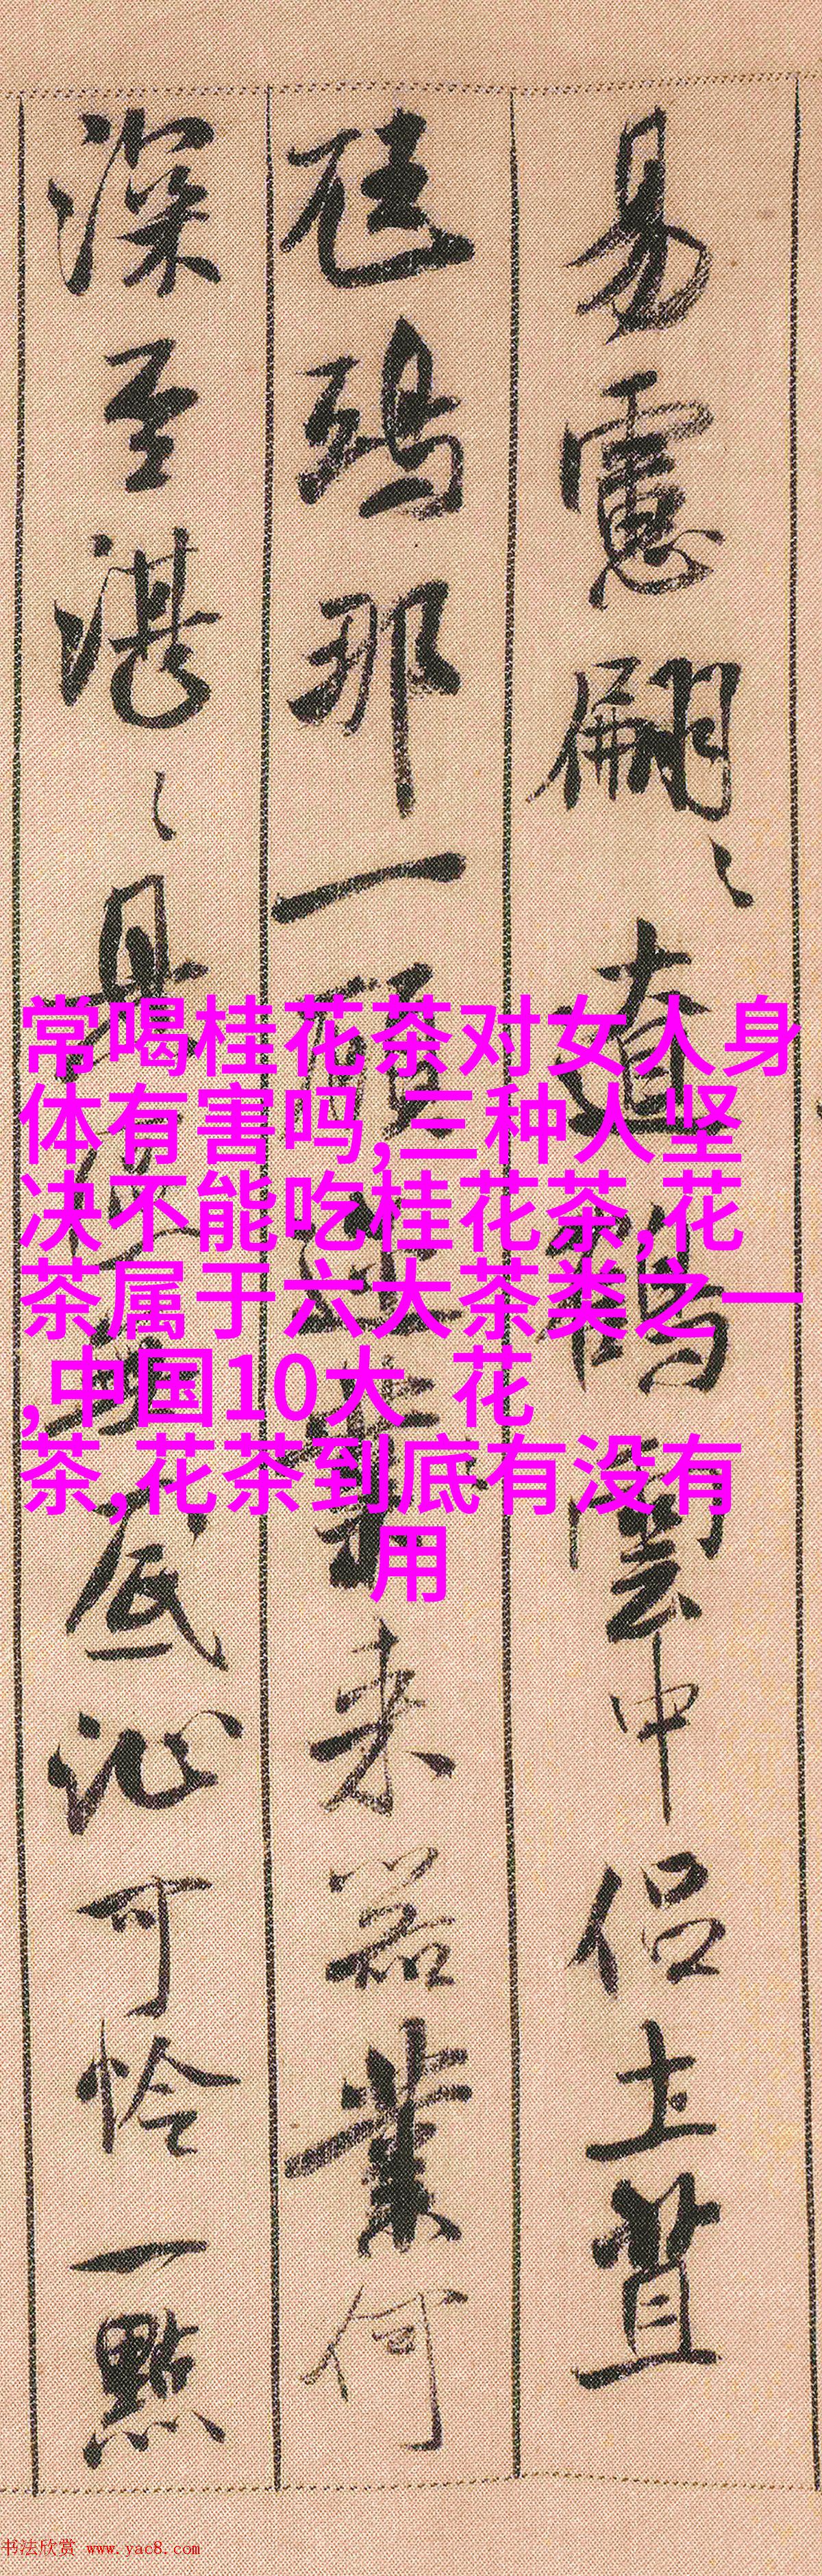 易慮翩〻遼鶴雲中侶土苴
尫鴟那一顧邇来器業何
深至湛〻具區無底沚可怜一點
常喝桂花茶对女人身
体有害吗,三种人坚
决不能吃桂花茶,花
茶属于六大茶类之一
,中国10大  花
茶,花茶到底有没有
用
书法欣赏 www.yac8.com